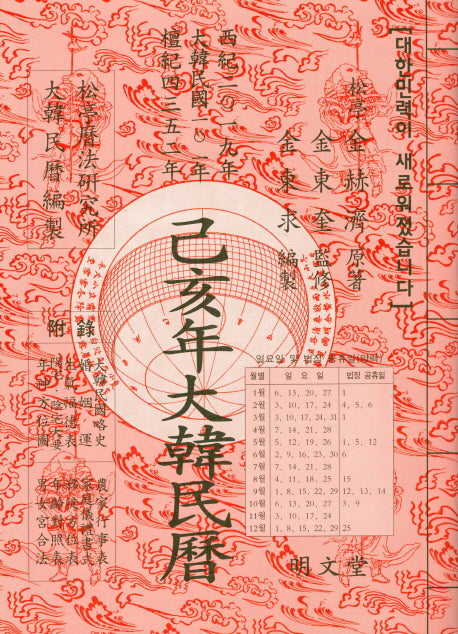 [대한민력이 새로워졌습니다]
松亭 金赫濟 原著
金東奎 監修
金東求 編製
西紀二〇一九年
大韓民國一〇一年
檀紀四三五二年
松亭曆法硏究所
大韓民曆編製
己亥年大韓民曆
附錄
大韓民國略史
婚姻運
生氣福德表
年神方位圖
農家行事表
家庭儀禮書式
移徙方位表
年齡對照表
男女宮合法
일요일 및 법정 공휴일(양력)
월별 일 요 일 법정 공휴일
1월 6, 13, 20, 27 1
2월 3, 10, 17, 24 4, 5, 6
3월 3, 10, 17, 24, 31 1
4월 7, 14, 21, 28
5월 5, 12, 19, 26 1, 5, 12
6월 2, 9, 16, 23, 30 6
7월 7, 14, 21, 28
8월 4, 11, 18, 25 15
9월 1, 8, 15, 22, 29 12, 13, 14
10월 6, 13, 20, 27 3, 9
11월 3, 10, 17, 24
12월 1, 8, 15, 22, 29 25
明文堂